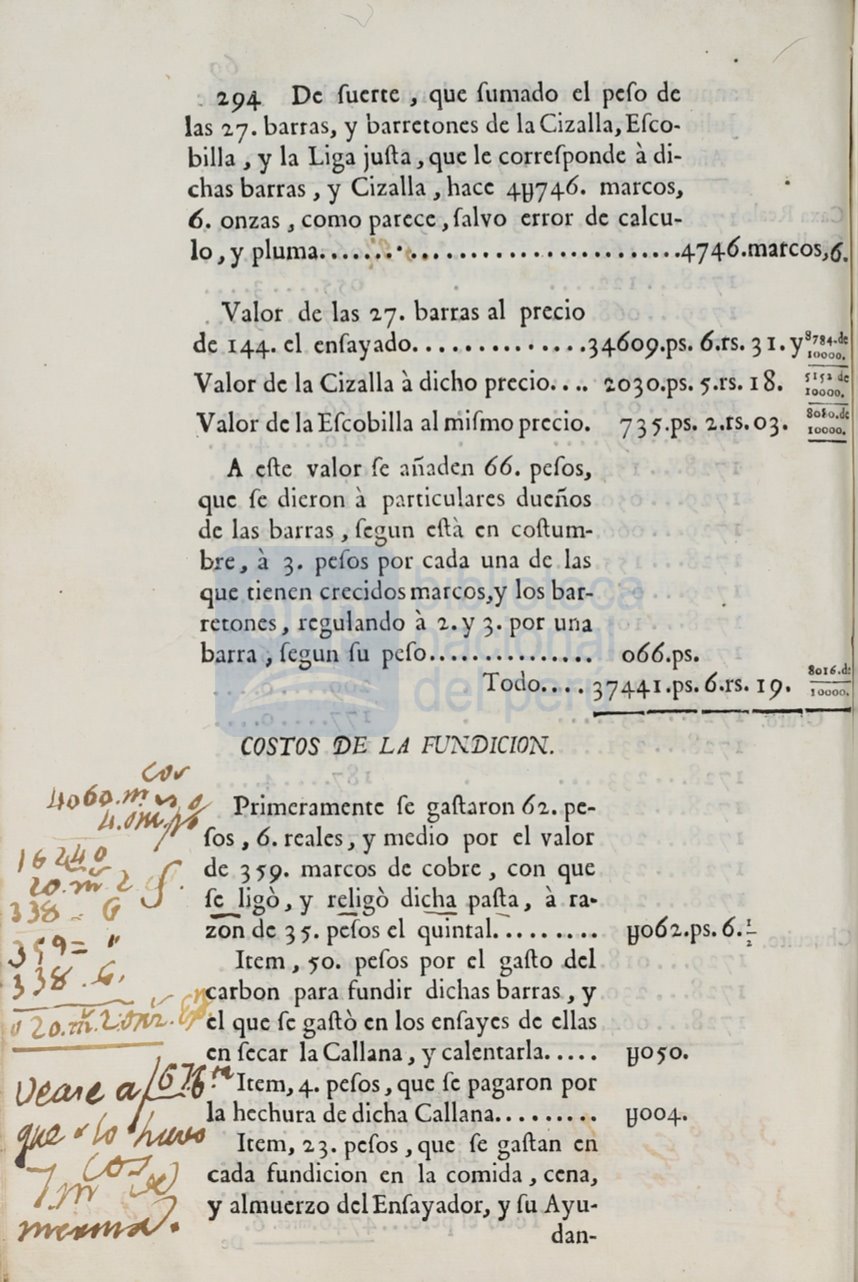 294 De ſuerte , que ſumado el peſo de
las 27. barras, y barretones de la Cizalla, Eſco-
billa , y la Liga juſta , que le correſponde à di-
chas barras , y Cizalla , hace 4ꝡ746. marcos,
6. onzas , como parece , ſalvo error de calcu-
lo, y pluma..............................4746.marcos,6.
Valor de las 27. barras al precio
de 144. el enſayado..............34609.ps. 6.rs. 31. y 8784.de 10000.
Valor de la Cizalla à dicho precio.... 2030.ps. 5.rs. 18. 5152 de 10000.
Valor de la Eſcobilla al miſmo precio. 735.ps. 2.rs. 03. 8080.de 10000.
A eſte valor ſe añaden 66. peſos,
que ſe dieron à particulares dueños
de las barras , ſegun eſtà en coſtum-
bre, à 3. peſos por cada una de las
que tienen crecidos marcos, y los bar-
retones, regulando à 2. y 3. por una
barra , ſegun ſu peſo............... 066.ps.
Todo.... 37441.ps. 6.rs. 19. 8016.de 10000.
biblioteca
nacional
del perú
COSTOS DE LA FUNDICION.
Primeramente ſe gaſtaron 62. pe-
ſos , 6. reales, y medio por el valor
de 359. marcos de cobre , con que
ſe ligò, y religò dicha paſta, à ra-
zon de 35. peſos el quintal......... ꝡ062.ps. 6. 1/2
Item , 50. peſos por el gaſto del
carbon para fundir dichas barras , y
el que ſe gaſtò en los enſayes de ellas
en ſecar la Callana, y calentarla..... ꝡ050.
Item, 4. peſos , que ſe pagaron por
la hechura de dicha Callana......... ꝡ004.
Item, 23. peſos , que ſe gaſtan en
cada fundicion en la comida , cena,
y almuerzo del Enſayador, y ſu Ayu-
dan-
4060.
16240
338 - 6
359 =
338 . 6.
Veaſe
que lo huvo
merma.